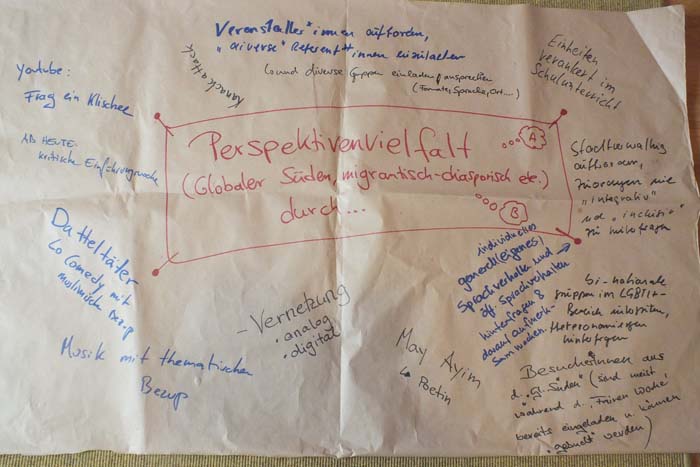 Veranstalter*innen auffordern,
"diverse" Referent*innen einzuladen
↳ und diverse Gruppen einladen/ansprechen
(Format, Sprache, Ort....)
Kanack Attack
Youtube:
Frag ein Klischee
AB HEUTE:
kritische Einführungswoche
Einheiten
verankert im
Schulunterricht
Perspektivenvielfalt
(Globaler Süden, migrantisch-diasporisch etc.)
durch...
A
B
Stadtverwaltung
auffordern,
nie
"integrativ"
und "inklusiv"
zu hinterfragen
Datteltäter
↳ Comedy mit
muslimisch Bezug
individuelles
generelleigenes,
Sprachverhalten und
öff. Sprachverhalten
hinterfragen &
darauf aufmerk-
sam machen.
- Vernetzung
• analog
• digital
bi-nationale
Gruppen im LGBTI+-
Bereich
hinterfragen
May Ayim
↳ Poetin
Musik mit thematischen
Bezug
Besucher*innen aus
d. "Gl. Süden" (sind meist
während d. Fairen Woche
bereits eingeladen u. können
"gebucht" werden)